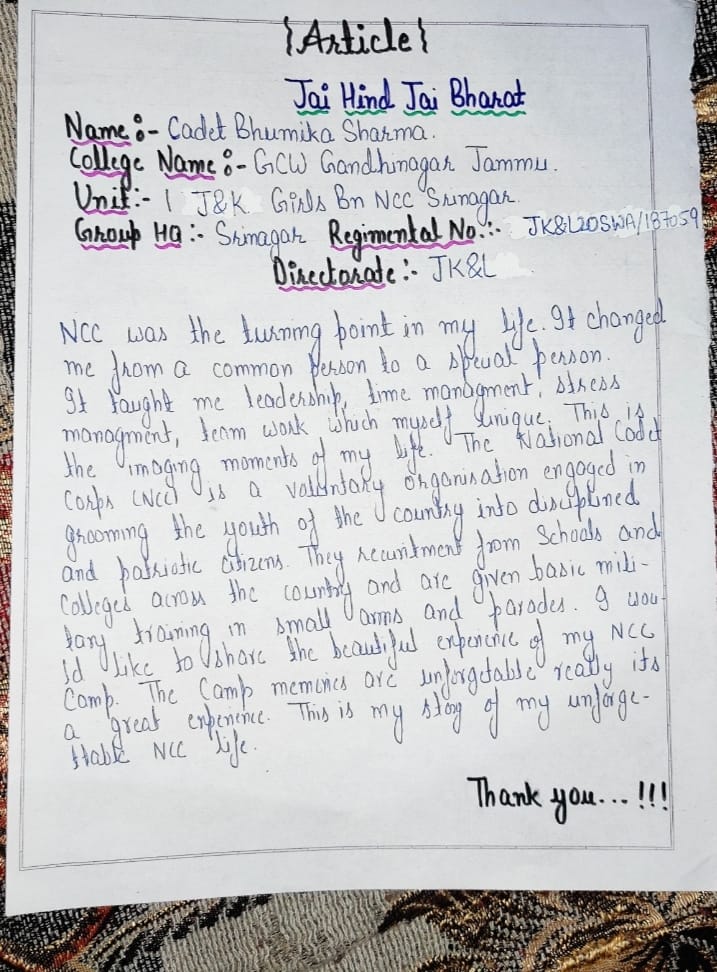 {Article}
Jai Hind Jai Bharat
Name :- Cadet Bhumika Sharma.
College Name :- GCW Gandhinagar Jammu.
Unit :- 1 J&K Girls Bn Ncc Srinagar.
Group HQ :- Srinagar Regimental No. :- JK&L20SWA/187059
Directorate :- JK&L
NCC was the turning point in my life. It changed
me from a common person to a special person.
It taught me leadership, time managment, stress
managment, team work which myself unique. This is
the imaging moments of my life. The National Cadet
Corps (NCC) is a voluntary organisation engaged in
grooming the youth of the country into disciplined
and patriotic citizens. They recuritment from Schools and
Colleges across the country and are given basic mili-
tary training in small arms and parades. I wou-
ld like to share the beautiful experience of my NCC
Camp. The Camp memories are unforgetable really its
a great experience. This is my story of my unforge-
ttable NCC life.
Thank you... !!!